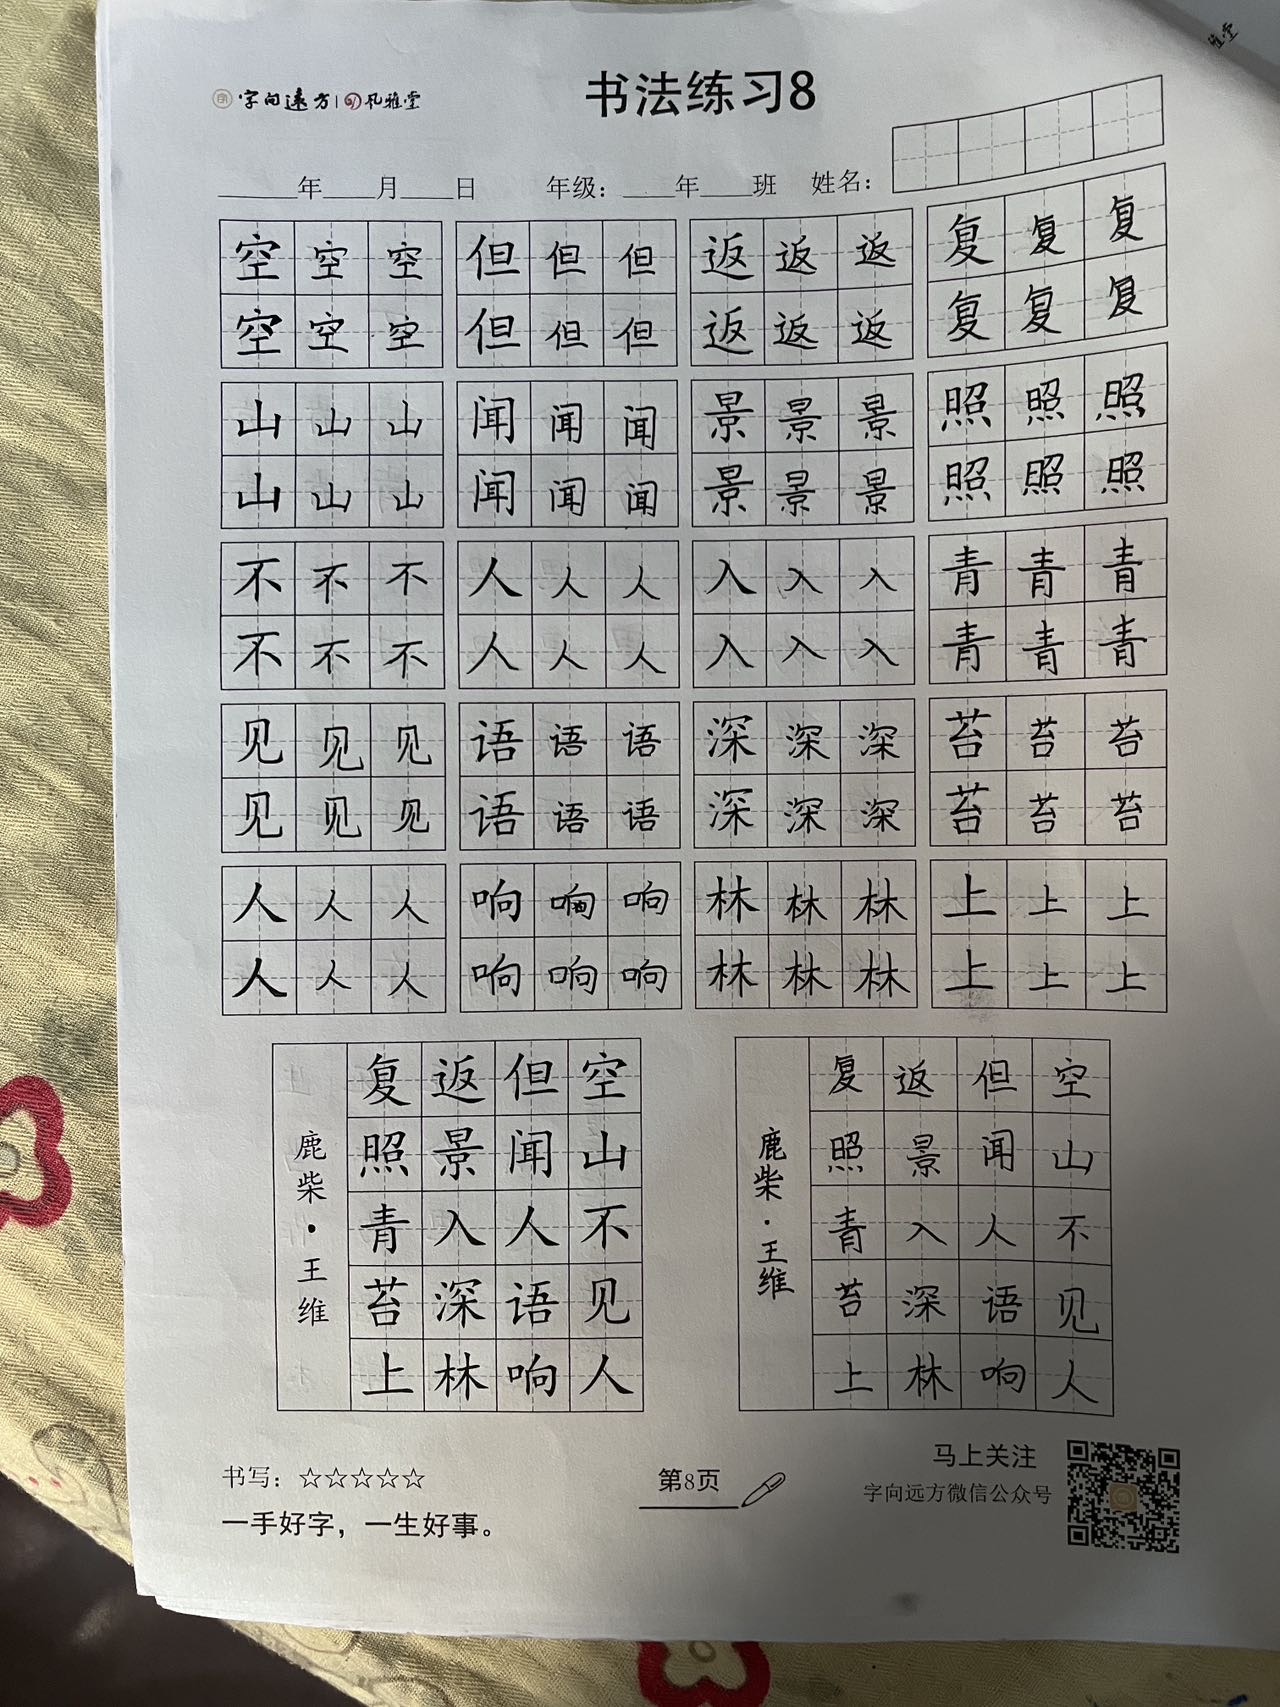 雅堂
字向远方 风雅堂
书法练习8
年 月 日 年级: 年 班 姓名:
空空空 但但但 返返返 复复复
空空空 但但但 返返返 复复复
山山山 闻闻闻 景景景 照照照
山山山 闻闻闻 景景景 照照照
不不不 人人人 入入入 青青青
不不不 人人人 入入入 青青青
见见见 语语语 深深深 苔苔苔
见见见 语语语 深深深 苔苔苔
人人人 响响响 林林林 上上上
人人人 响响响 林林林 上上上
空山不见人
但闻人语响
返景入深林
复照青苔上
鹿柴·王维
空山不见人
但闻人语响
返景入深林
复照青苔上
鹿柴·王维
书写: ☆☆☆☆☆
一手好字，一生好事。
第8页
马上关注
字向远方微信公众号